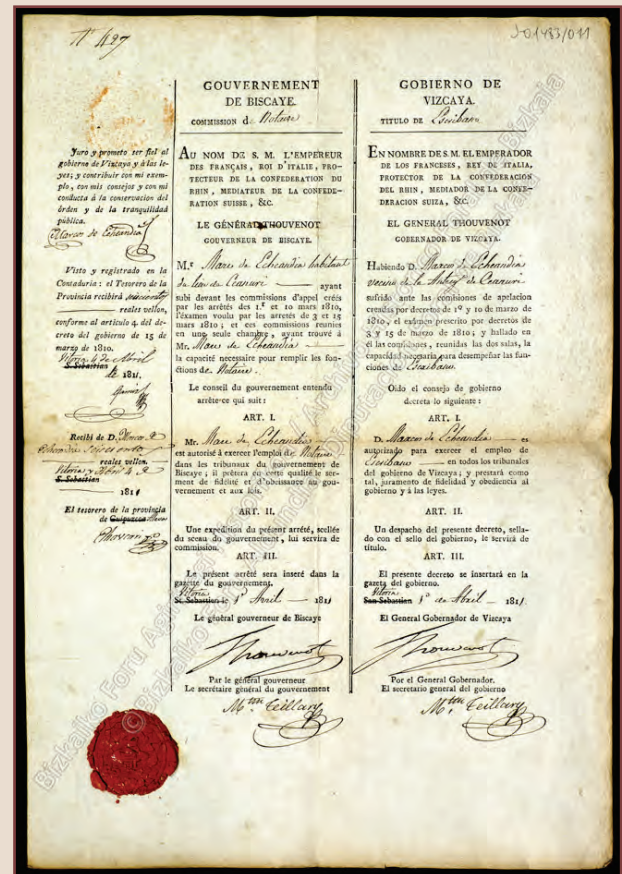 Nº 497
J-01483/011
Juro y prometo ser fiel al
gobierno de Vizcaya y à las le-
yes; y contribuir con mi exem-
plo, con mis consejos y con mi
conducta á la conservacion del
órden y de la tranquilidad
pública.
Marcos de Echeandia
Visto y registrado en la
Contaduría: el Tesorero de la
Provincia recibirá
reales vellon,
conforme al articulo 4. del de-
creto del gobierno de 15 de
marzo de 1810.
Vitoria 4 de Abril
S. Sebastian
de 1811
Recibí de D. Marcos
Echeandia
reales vellon.
Vitoria y Abril 4
S. Sebastian
1811
El tesorero de la provincia
de Guipuzcoa
GOUVERNEMENT
DE BISCAYE.
COMMISSION de Notaire
AU NOM DE S. M. L'EMPEREUR
DES FRANÇAIS, ROI D'ITALIE, PRO-
TECTEUR DE LA CONFEDERATION DU
RHIN, MEDIATEUR DE LA CONFEDE-
RATION SUISSE, &c.
LE GÉNÉRAL THOUVENOT
GOUVERNEUR DE BISCAYE.
M.r Marc de Echeandia habitant
du lieu de Ceanuri ayant
subi devant les commissions d'appel créés
par les arrêtés des 1.er et 10 mars 1810,
l'éxamen voulu par les arretés de 3 et 15
mars 1810; et ces commissions reunies
en une seule chambre, ayant trouvé à
Mr. Marc de Echeandia
la capacité necessaire pour remplir les fon-
ctions de Notaire.
Le conseil du gouvernement entendu
arrête ce qui suit:
ART. I.
Mr. Marc de Echeandia
est autorizé à exercer l'emploi de Notaire
dans les tribunaux du gouvernement de
Biscaye; il prètera en cette qualité le ser-
ment de fidélité et d'obeissance au gou-
vernement et aux lois.
ART. II.
Une expedition du présent arrété, scellée
du sceau du gouvernement, lui servira de
commission.
ART. III.
Le présent arrêté sera inseré dans la
gazette du gouvernement.
Vitoria
St. Sebastien le 1º Avril 1811
Le général gouverneur de Biscaye
Thouvenot
Par le général gouverneur
Le secrétaire général du gouvernement
GOBIERNO DE
VIZCAYA.
TITULO DE Escribano
EN NOMBRE DE S. M. EL EMPERADOR
DE LOS FRANCESES, REY DE ITALIA,
PROTECTOR DE LA CONFEDERACION
DEL RHIN, MEDIADOR DE LA CONFE-
DERACION SUIZA, &C.
EL GENERAL THOUVENOT
GOBERNADOR DE VIZCAYA.
Habiendo D. Marcos de Echeandia
vecino de la Anteyg.ª de Ceanuri
sufrido ante las comisiones de apelacion
creadas por decretos de 1º y 10 de marzo de
1810, el exámen prescrito por decretos de
3 y 15 de marzo de 1810; y hallado en
él las comisiones, reunidas las dos salas, la
capacidad necesaria para desempeñar las fun-
ciones de Escribano.
Oido el consejo de gobierno
decreta lo siguiente:
ART. I.
D. Marcos de Echeandia es
autorizado para exercer el empleo de
Escribano en todos los tribunales
del gobierno de Vizcaya; y prestará como
tal, juramento de fidelidad y obediencia al
gobierno y á las leyes.
ART. II.
Un despacho del presente decreto, sella-
do con el sello del gobierno, le servirá de
título.
ART. III.
El presente decreto se insertará en la
gazeta del gobierno.
Vitoria
San Sebastian 1º de Abril 1811
El General Gobernador de Vizcaya
Thouvenot
Por el General Gobernador.
El secretario general del gobierno